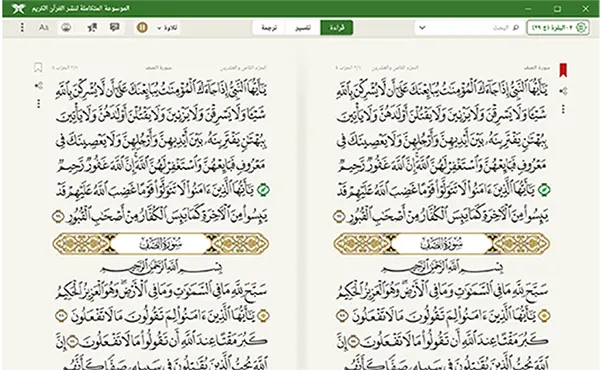 الموسوعة المتكاملة لنشر القرآن الكريم
٢-البقرة (ج ٢٩)
البحث
قراءة
تفسير
ترجمة
تلاوة
Aa
سورة الصف
الجزء الثامن والعشرين
٢/١ الحزب ٤
يَـٰٓأَيُّهَا ٱلنَّبِىُّ إِذَا جَآءَكَ ٱلْمُؤْمِنَـٰتُ يُبَايِعْنَكَ عَلَىٰٓ أَن لَّا يُشْرِكْنَ بِٱللَّهِ
شَيْـًٔا وَلَا يَسْرِقْنَ وَلَا يَزْنِينَ وَلَا يَقْتُلْنَ أَوْلَـٰدَهُنَّ وَلَا يَأْتِينَ
بِبُهْتَـٰنٍ يَفْتَرِينَهُۥ بَيْنَ أَيْدِيهِنَّ وَأَرْجُلِهِنَّ وَلَا يَعْصِينَكَ فِى
مَعْرُوفٍ فَبَايِعْهُنَّ وَٱسْتَغْفِرْ لَهُنَّ ٱللَّهَ إِنَّ ٱللَّهَ غَفُورٌ رَّحِيمٌ
١٢ يَـٰٓأَيُّهَا ٱلَّذِينَ ءَامَنُوا۟ لَا تَتَوَلَّوْا۟ قَوْمًا غَضِبَ ٱللَّهُ عَلَيْهِمْ قَدْ
يَئِسُوا۟ مِنَ ٱلْـَٔاخِرَةِ كَمَا يَئِسَ ٱلْكُفَّارُ مِنْ أَصْحَـٰبِ ٱلْقُبُورِ ١٣
سُورَةُ الصَّفِّ
بِسْمِ ٱللَّهِ ٱلرَّحْمَـٰنِ ٱلرَّحِيمِ
سَبَّحَ لِلَّهِ مَا فِى ٱلسَّمَـٰوَٰتِ وَمَا فِى ٱلْأَرْضِ وَهُوَ ٱلْعَزِيزُ ٱلْحَكِيمُ
١ يَـٰٓأَيُّهَا ٱلَّذِينَ ءَامَنُوا۟ لِمَ تَقُولُونَ مَا لَا تَفْعَلُونَ ٢
كَبُرَ مَقْتًا عِندَ ٱللَّهِ أَن تَقُولُوا۟ مَا لَا تَفْعَلُونَ ٣ إِنَّ
ٱللَّهَ يُحِبُّ ٱلَّذِينَ يُقَـٰتِلُونَ فِى سَبِيلِهِۦ صَفًّا كَأَنَّهُم
سورة الصف
الجزء الثامن والعشرين
٢/١ الحزب ٤
يَـٰٓأَيُّهَا ٱلنَّبِىُّ إِذَا جَآءَكَ ٱلْمُؤْمِنَـٰتُ يُبَايِعْنَكَ عَلَىٰٓ أَن لَّا يُشْرِكْنَ بِٱللَّهِ
شَيْـًٔا وَلَا يَسْرِقْنَ وَلَا يَزْنِينَ وَلَا يَقْتُلْنَ أَوْلَـٰدَهُنَّ وَلَا يَأْتِينَ
بِبُهْتَـٰنٍ يَفْتَرِينَهُۥ بَيْنَ أَيْدِيهِنَّ وَأَرْجُلِهِنَّ وَلَا يَعْصِينَكَ فِى
مَعْرُوفٍ فَبَايِعْهُنَّ وَٱسْتَغْفِرْ لَهُنَّ ٱللَّهَ إِنَّ ٱللَّهَ غَفُورٌ رَّحِيمٌ
١٢ يَـٰٓأَيُّهَا ٱلَّذِينَ ءَامَنُوا۟ لَا تَتَوَلَّوْا۟ قَوْمًا غَضِبَ ٱللَّهُ عَلَيْهِمْ قَدْ
يَئِسُوا۟ مِنَ ٱلْـَٔاخِرَةِ كَمَا يَئِسَ ٱلْكُفَّارُ مِنْ أَصْحَـٰبِ ٱلْقُبُورِ ١٣
سُورَةُ الصَّفِّ
بِسْمِ ٱللَّهِ ٱلرَّحْمَـٰنِ ٱلرَّحِيمِ
سَبَّحَ لِلَّهِ مَا فِى ٱلسَّمَـٰوَٰتِ وَمَا فِى ٱلْأَرْضِ وَهُوَ ٱلْعَزِيزُ ٱلْحَكِيمُ
١ يَـٰٓأَيُّهَا ٱلَّذِينَ ءَامَنُوا۟ لِمَ تَقُولُونَ مَا لَا تَفْعَلُونَ ٢
كَبُرَ مَقْتًا عِندَ ٱللَّهِ أَن تَقُولُوا۟ مَا لَا تَفْعَلُونَ ٣ إِنَّ
ٱللَّهَ يُحِبُّ ٱلَّذِينَ يُقَـٰتِلُونَ فِى سَبِيلِهِۦ صَفًّا كَأَنَّهُم